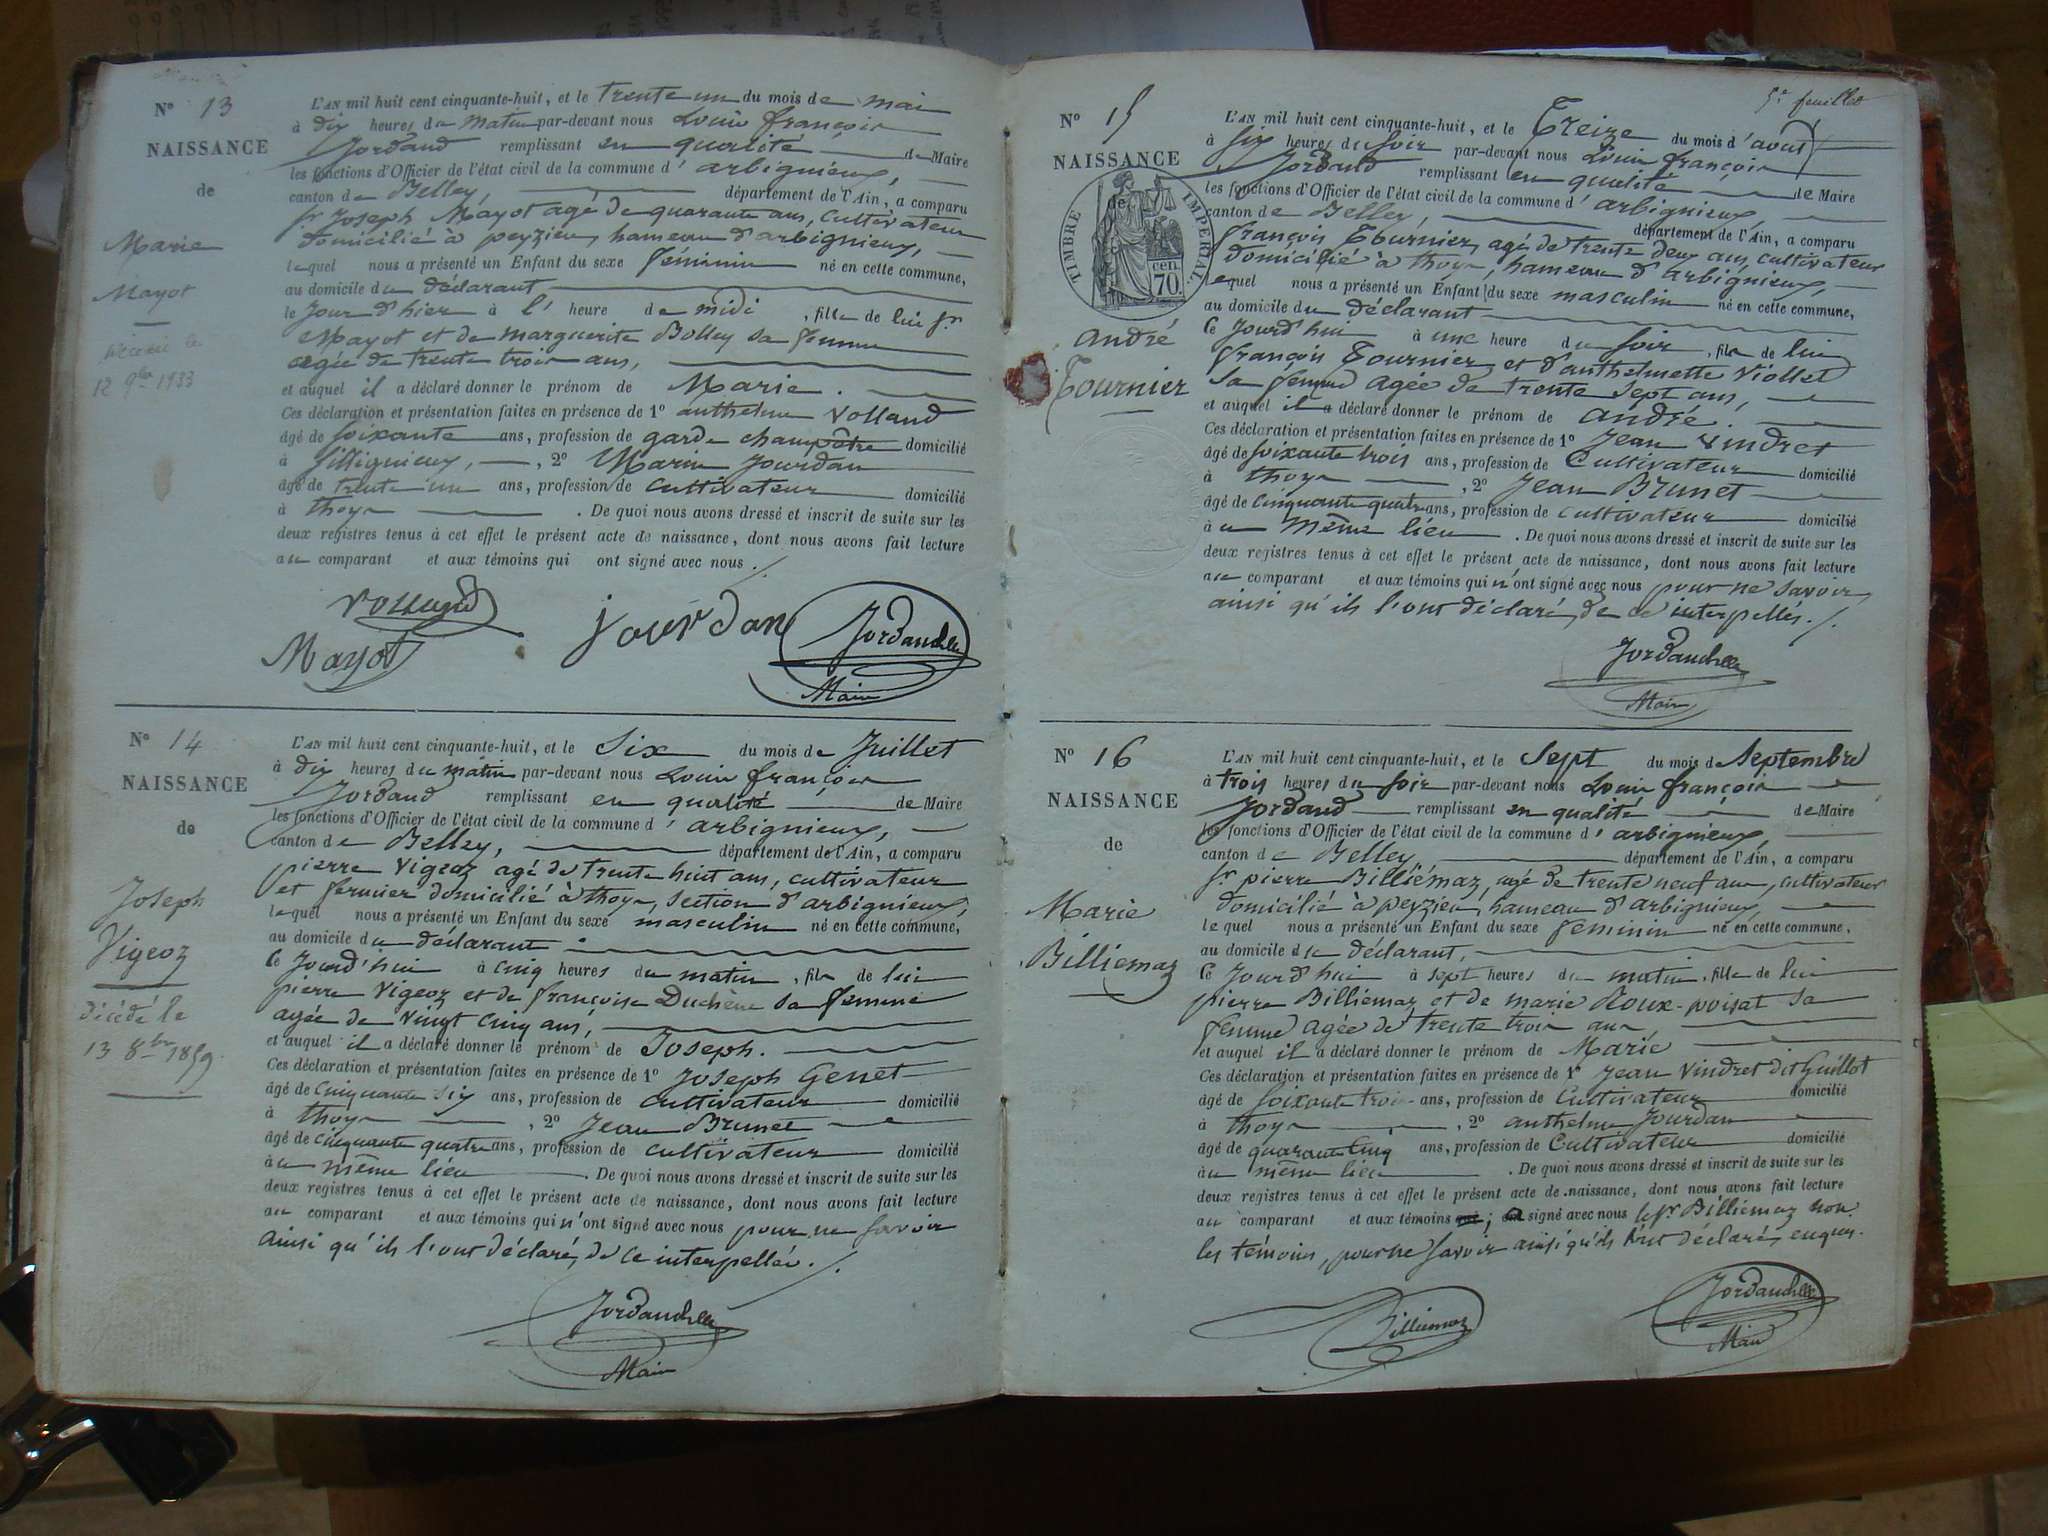 N° 13
NAISSANCE
de
Marie
Mayot
décédée le
12 9bre 1933
L'AN mil huit cent cinquante-huit, et le trente un du mois de mai
à dix heures du matin par-devant nous Louis françois
Jordand remplissant en qualité de Maire
les fonctions d'Officier de l'état civil de la commune d'arbignieux,
canton de Belley, département de l'Ain, a comparu
Sr Joseph Mayot agé de quarante ans, cultivateur
domicilié à peyzieu, hameau d'arbignieux,
lequel nous a présenté un Enfant du sexe féminin né en cette commune,
au domicile du déclarant
le jour d'hier à l' heure de midi, fille de lui Sr
Mayot et de marguerite Bolley sa femme
agée de trente trois ans,
et auquel il a déclaré donner le prénom de Marie.
Ces déclaration et présentation faites en présence de 1° anthelme Volland
âgé de soixante ans, profession de garde champêtre domicilié
à Sillignieux, 2° Marin Jourdan
âgé de trente un ans, profession de cultivateur domicilié
à thoys. De quoi nous avons dressé et inscrit de suite sur les
deux registres tenus à cet effet le présent acte de naissance, dont nous avons fait lecture
au comparant et aux témoins qui ont signé avec nous ./.
Volland
Mayot
jourdan
Jordand
Maire
N° 14
NAISSANCE
de
Joseph
Vigeoz
décédé le
13 8bre 1859
L'AN mil huit cent cinquante-huit, et le Six du mois de Juillet
à dix heures du matin par-devant nous Louis françois
Jordand remplissant en qualité de Maire
les fonctions d'Officier de l'état civil de la commune d'arbignieux,
canton de Belley, département de l'Ain, a comparu
pierre Vigeoz agé de trente huit ans, cultivateur
et fermier domicilié à thoys, section d'arbignieux,
lequel nous a présenté un Enfant du sexe masculin né en cette commune,
au domicile du déclarant
Ce jourd'hui à cinq heures du matin, fils de lui
pierre Vigeoz et de françoise Duchêne sa femme
agée de vingt cinq ans,
et auquel il a déclaré donner le prénom de Joseph.
Ces déclaration et présentation faites en présence de 1° Joseph Genet
âgé de cinquante six ans, profession de cultivateur domicilié
à thoys, 2° Jean Brunet
âgé de cinquante quatre ans, profession de cultivateur domicilié
au même lieu. De quoi nous avons dressé et inscrit de suite sur les
deux registres tenus à cet effet le présent acte de naissance, dont nous avons fait lecture
au comparant et aux témoins qui n'ont signé avec nous pour ne savoir
ainsi qu'ils l'ont déclaré, de ce interpellés ./.
Jordand
Maire
5e feuillet
N° 15
NAISSANCE
de
TIMBRE IMPÉRIAL
70 cen
andré
Tournier
L'AN mil huit cent cinquante-huit, et le Treize du mois d'aout
à six heures du soir par-devant nous Louis françois
Jordand remplissant en qualité de Maire
les fonctions d'Officier de l'état civil de la commune d'arbignieux
canton de Belley, département de l'Ain, a comparu
françois Tournier, agé de trente deux ans, cultivateur
domicilié à thoys, hameau d'arbignieux,
lequel nous a présenté un Enfant du sexe masculin né en cette commune,
au domicile du déclarant
Ce jourd'hui à une heure du soir, fils de lui
françois Tournier et d'anthelmette Viollet
sa femme agée de trente sept ans,
et auquel il a déclaré donner le prénom de andré.
Ces déclaration et présentation faites en présence de 1° Jean Vindret
âgé de soixante trois ans, profession de Cultivateur domicilié
à thoys, 2° Jean Brunet
âgé de cinquante quatre ans, profession de cultivateur domicilié
au même lieu. De quoi nous avons dressé et inscrit de suite sur les
deux registres tenus à cet effet le présent acte de naissance, dont nous avons fait lecture
au comparant et aux témoins qui n'ont signé avec nous pour ne savoir
ainsi qu'ils l'ont déclaré, de ce interpellés ./.
Jordand
Maire
N° 16
NAISSANCE
de
Marie
Billiemaz
L'AN mil huit cent cinquante-huit, et le Sept du mois de Septembre
à trois heures du soir par-devant nous Louis françois
Jordand remplissant en qualité de Maire
les fonctions d'Officier de l'état civil de la commune d'arbignieux,
canton de Belley département de l'Ain, a comparu
Sr pierre Billiemaz, agé de trente neuf ans, cultivateur
domicilié à peyzieu, hameau d'arbignieux,
lequel nous a présenté un Enfant du sexe féminin né en cette commune,
au domicile du déclarant,
Ce jourd'hui à sept heures du matin, fille de lui
pierre Billiemaz et de marie Roux-poisat sa
femme agée de trente trois ans,
et auquel il a déclaré donner le prénom de Marie
Ces déclaration et présentation faites en présence de 1° Jean Vindret dit Guillot
âgé de soixante trois ans, profession de Cultivateur domicilié
à thoys, 2° anthelme Jourdan
âgé de quarante cinq ans, profession de Cultivateur domicilié
au même lieu. De quoi nous avons dressé et inscrit de suite sur les
deux registres tenus à cet effet le présent acte de naissance, dont nous avons fait lecture
au comparant et aux témoins qui; a signé avec nous le Sr Billiemaz non
les témoins, pour ne savoir ainsi qu'ils l'ont déclaré, enquis.
Billiemaz
Jordand
Maire